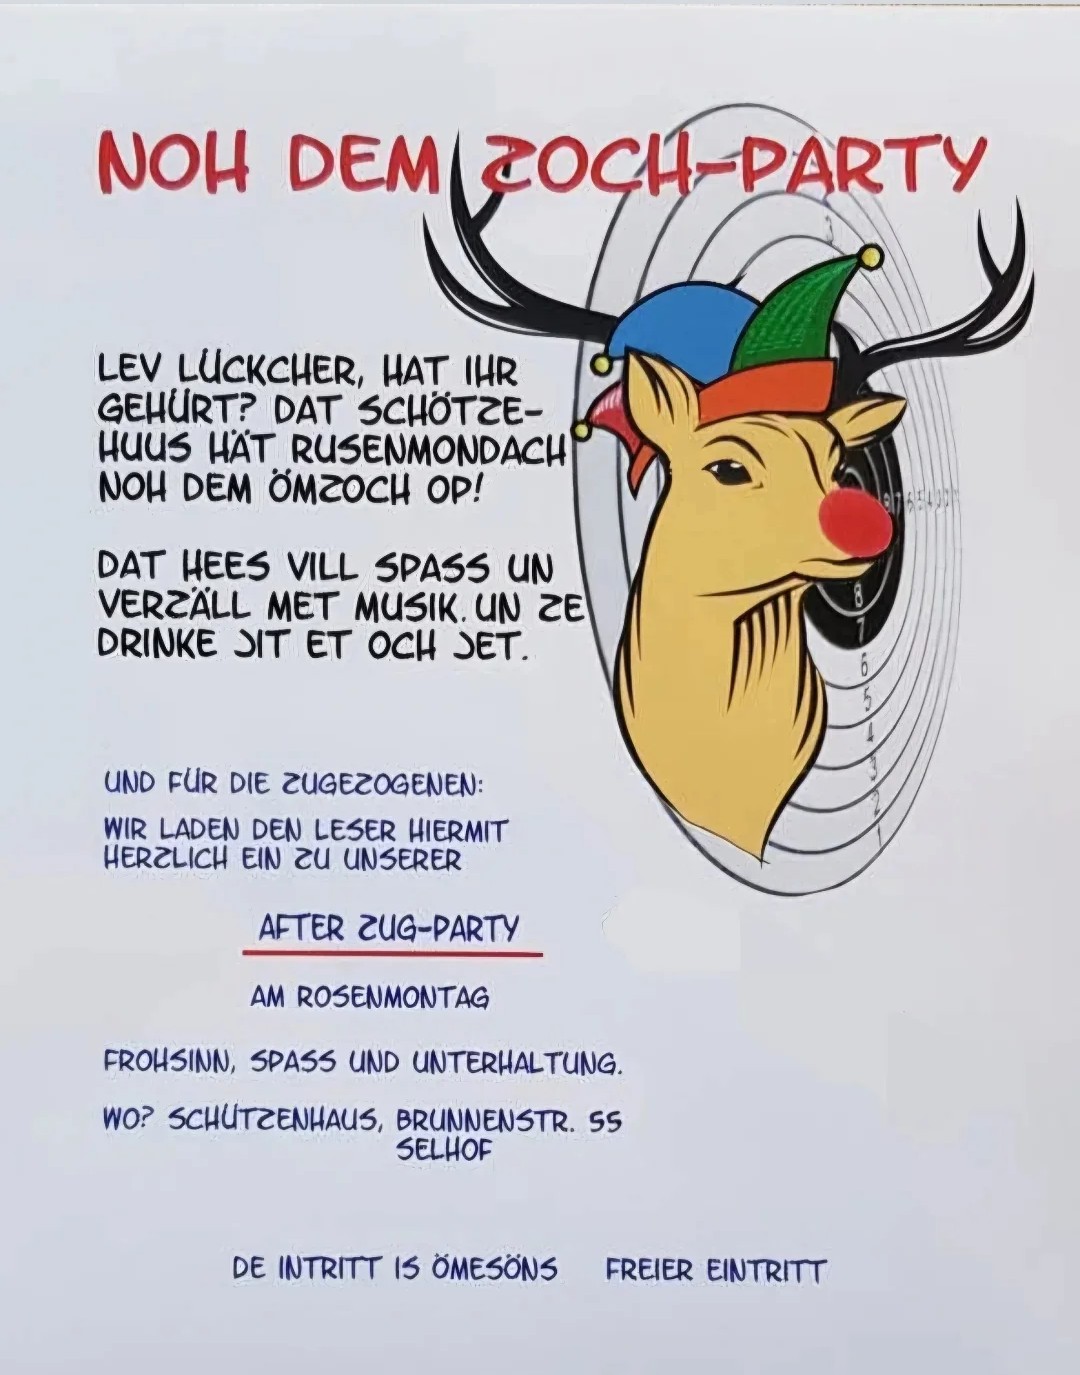 NOH DEM ZOCH-PARTY
LEV LÜCKCHER, HAT IHR
GEHÜRT? DAT SCHÖTZE-
HUUS HÄT RUSENMONDACH
NOH DEM ÖMZOCH OP!
DAT HEES VILL SPASS UN
VERZÄLL MET MUSIK. UN ZE
DRINKE JIT ET OCH JET.
UND FÜR DIE ZUGEZOGENEN:
WIR LADEN DEN LESER HIERMIT
HERZLICH EIN ZU UNSERER
AFTER ZUG-PARTY
AM ROSENMONTAG
FROHSINN, SPASS UND UNTERHALTUNG.
WO? SCHÜTZENHAUS, BRUNNENSTR. 55
SELHOF
DE INTRITT IS ÖMESÖNS FREIER EINTRITT
3
8
7
6
5
4
3
2
1